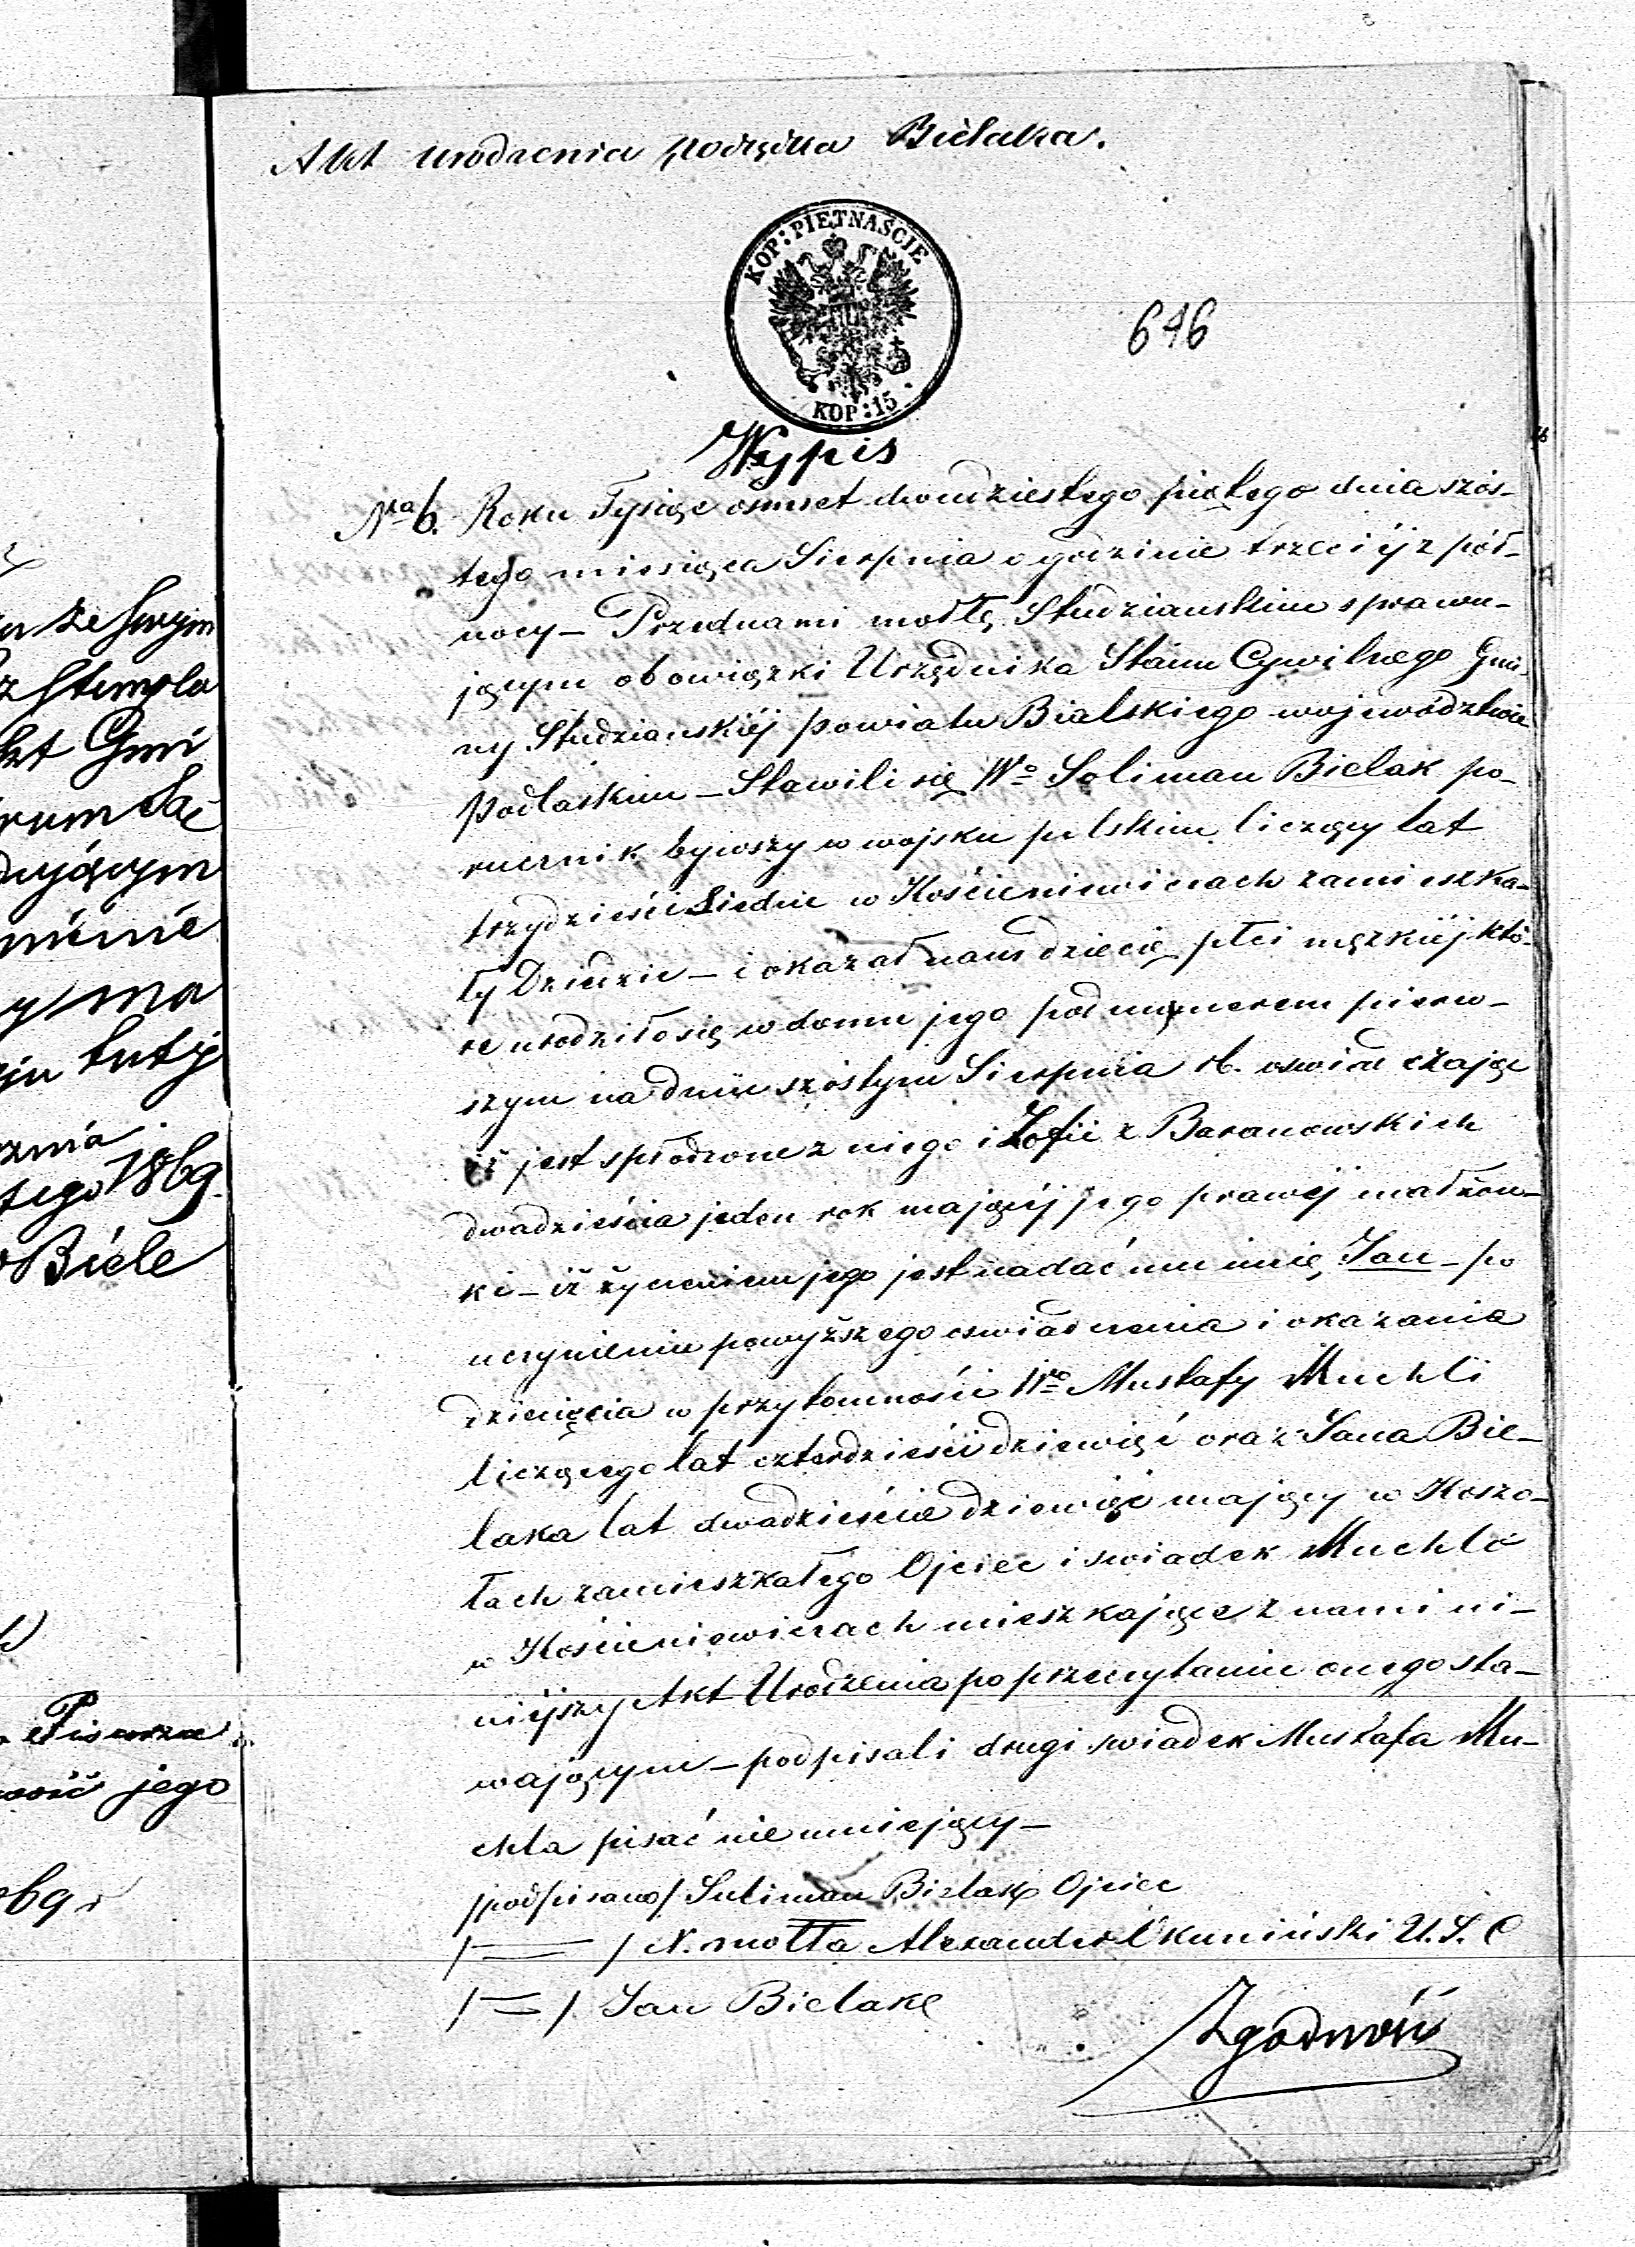 Akt urodzenia porządku Bielaka.
KOP: PIĘTNAŚCIE
KOP: 15
646
Wypis
Nra 6. Roku Tysiąc ośmset dwudziestego piątego dnia szós-
tego miesiąca Sierpnia o godzinie trzeciéj z pół-
nocy – Przednami mołłą Studziańskim sprawu-
jącym obowiązki Urzędnika Stanu Cywilnego Gmi-
ny Studziańskiéj powiatu Bialskiego województwie
Podlaskim – Stawili się Wo Soliman Bielak po-
rucznik bywszy w wojsku polskim liczący lat
trzydzieści siedm w Kościeniewiczach zamieszka-
ły Dziedzic – i okazał nam dziecię płci męzkiéj któ-
re urodziło się w domu jego pod numerem pierw-
szym na dniu szóstym Sierpnia rb. oswiadczając
iż jest spłodzone z niego i Zofii z Baranowskich
dwadzieścia jeden rok mającéj jego prawéj małżon-
ki – iż życzeniem jego jest nadać mu imię Jan – po
uczynieniu powyższego oswiadczenia i okazania
dziecięcia w przytomności Wo Mustafy Muchli
liczącego lat czterdzieści dziewięć oraz Jana Bie-
laka lat dwadzieścia dziewięć mający w Koszo-
łach zamieszkałego Ojciec i swiadek Muchla
w Kościeniewiczach mieszkające z nami ni-
niéjszy Akt Urodzenia po przeczytaniu onego sta-
wającym – podpisali drugi swiadek Mustafa Mu-
chla pisać nie umiejący –
/podpisano/ Suliman Bielak Ojciec
/ = / N. mołła Alexander Okumiński U. S. C
/ = / Jan Bielak
Zgodność
ze swym
Stempla
Gmi
mienie
ma
tuty
tego 1869
Biele
Pisarza
jego